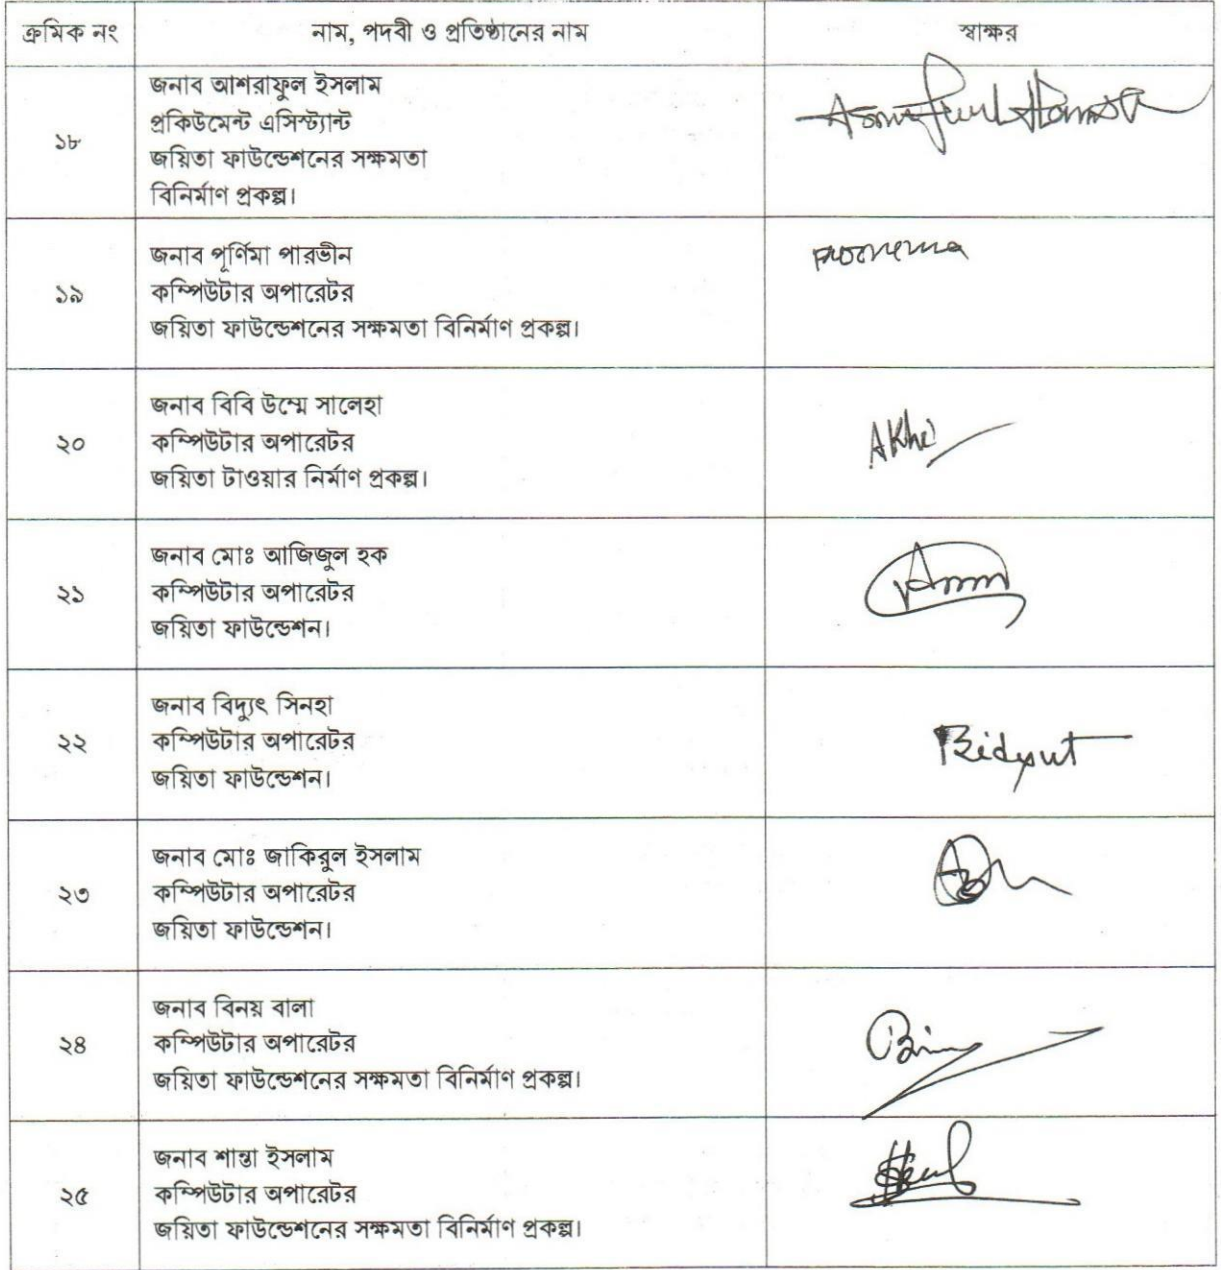 ক্রমিক নং নাম, পদবী ও প্রতিষ্ঠানের নাম স্বাক্ষর
জনাব আশরাফুল ইসলাম
প্রকিউমেন্ট এসিস্ট্যান্ট
১৮
জয়িতা ফাউন্ডেশনের সক্ষমতা
বিনির্মাণ প্রকল্প।
জনাব পূর্ণিমা পারভীন
১৯ কম্পিউটার অপারেটর
জয়িতা ফাউন্ডেশনের সক্ষমতা বিনির্মাণ প্রকল্প।
জনাব বিবি উম্মে সালেহা
২০ কম্পিউটার অপারেটর Akhi
জয়িতা টাওয়ার নির্মাণ প্রকল্প।
জনাব মোঃ আজিজুল হক
২১ কম্পিউটার অপারেটর
জয়িতা ফাউন্ডেশন।
জনাব বিদ্যুৎ সিনহা
২২ কম্পিউটার অপারেটর Bidyut
জয়িতা ফাউন্ডেশন।
জনাব মোঃ জাকিরুল ইসলাম
২৩ কম্পিউটার অপারেটর
জয়িতা ফাউন্ডেশন।
জনাব বিনয় বালা
২৪ কম্পিউটার অপারেটর
জয়িতা ফাউন্ডেশনের সক্ষমতা বিনির্মাণ প্রকল্প।
জনাব শান্তা ইসলাম
২৫ কম্পিউটার অপারেটর
জয়িতা ফাউন্ডেশনের সক্ষমতা বিনির্মাণ প্রকল্প।